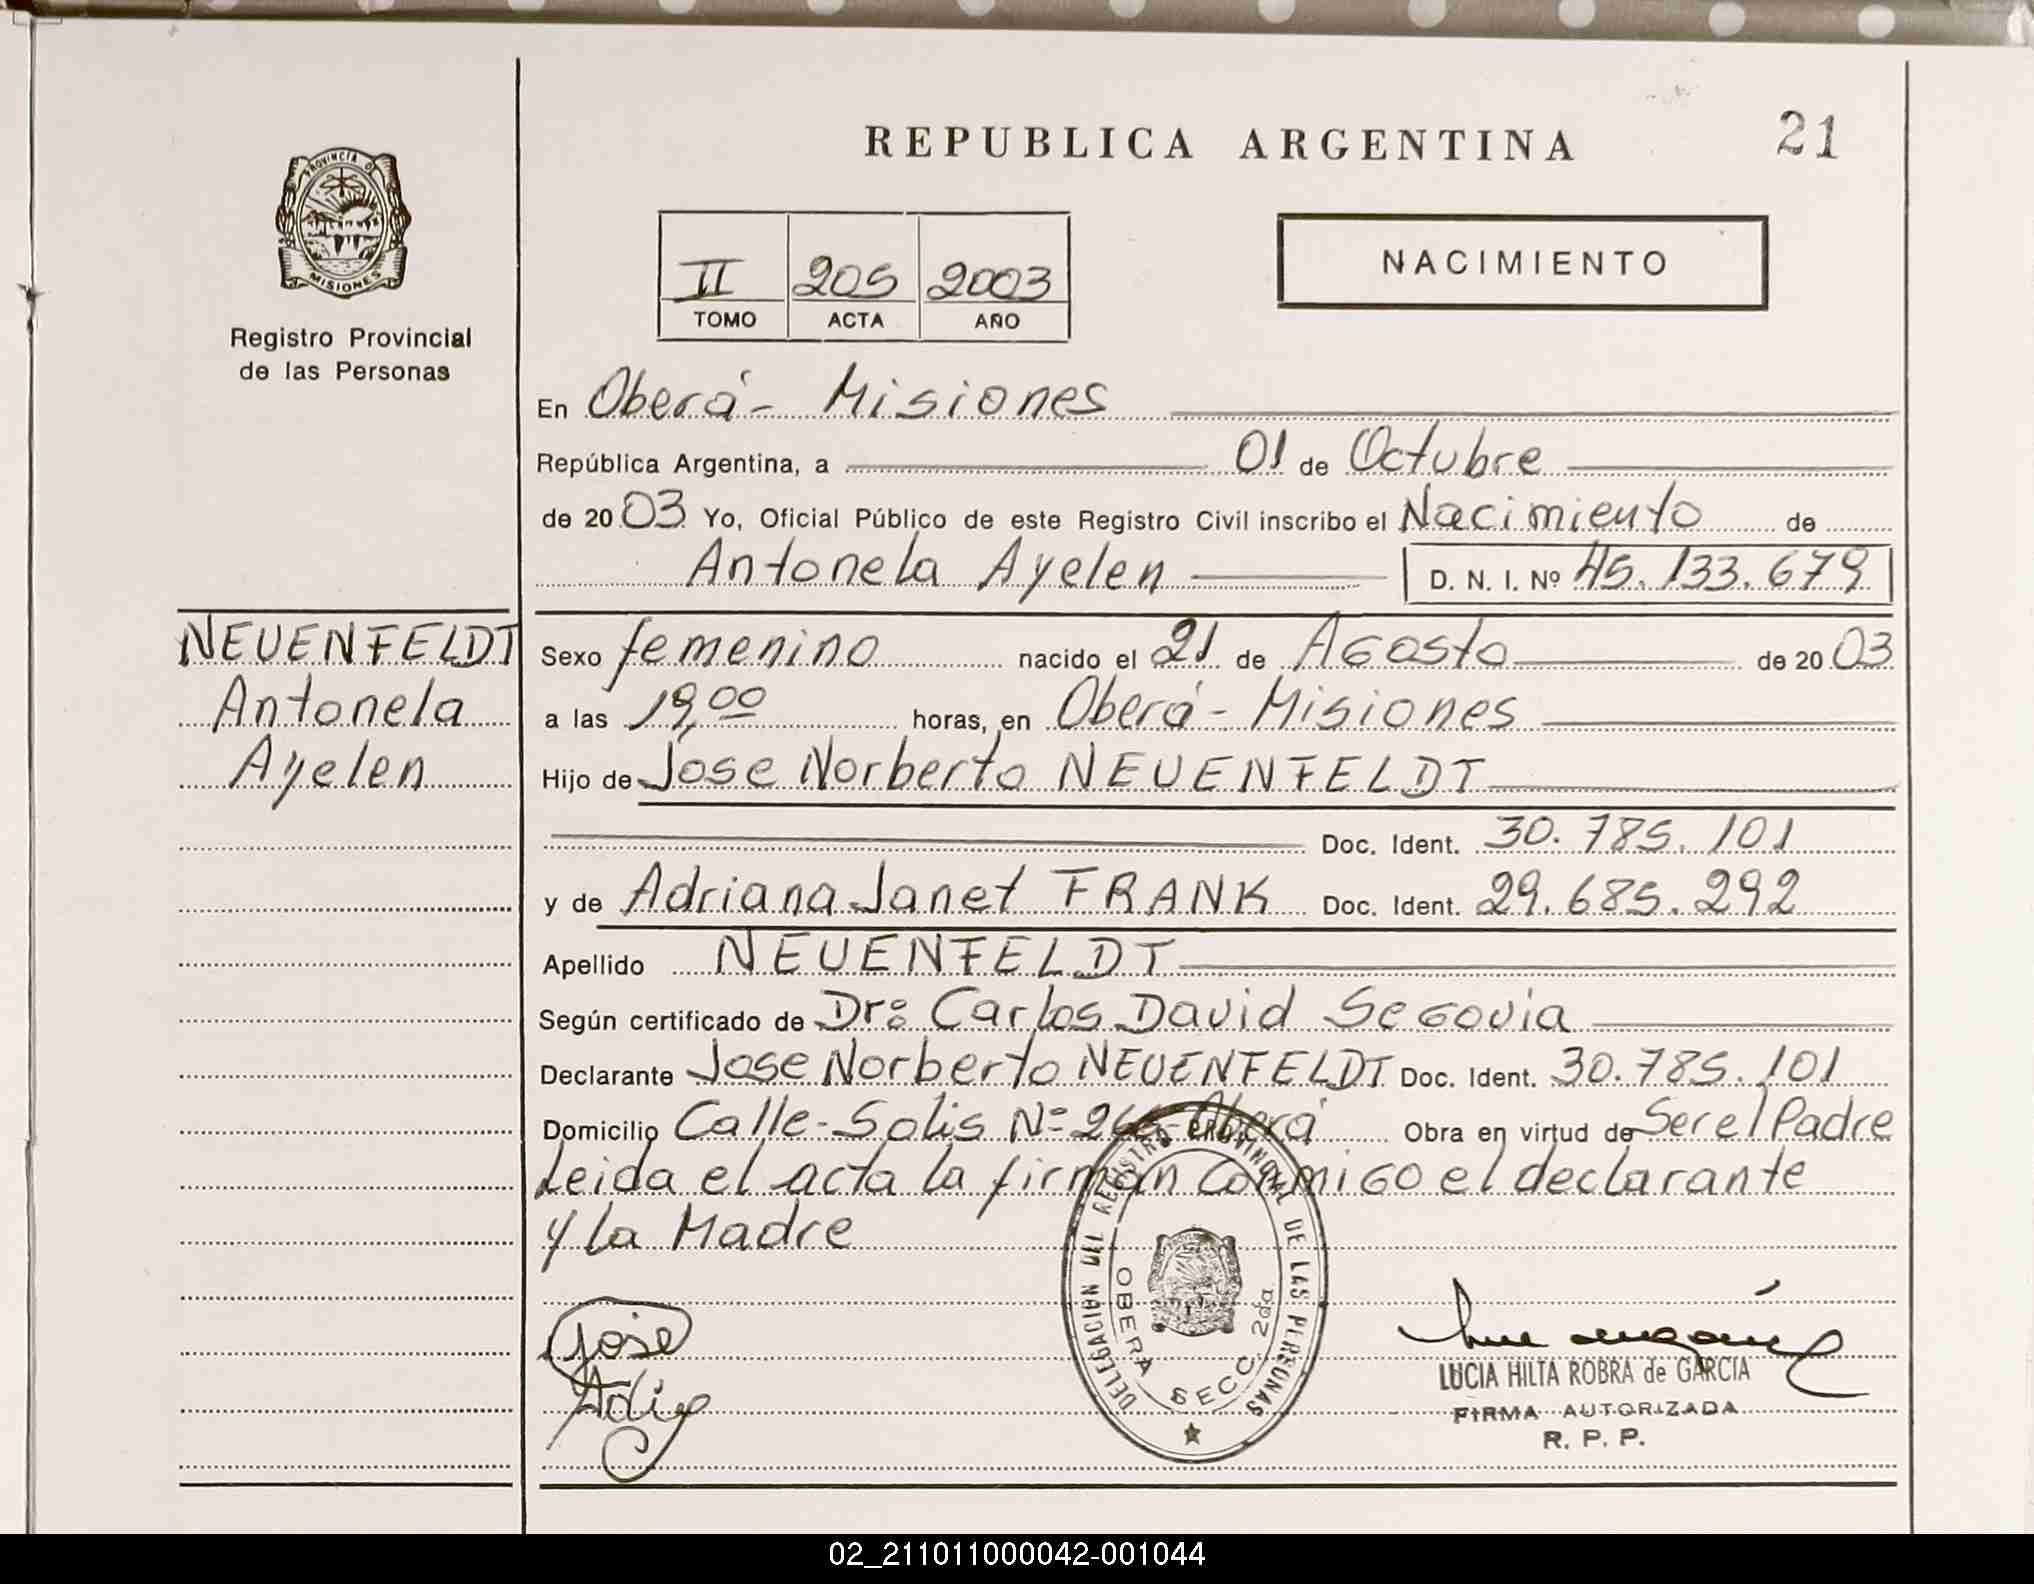 REPUBLICA ARGENTINA
21
PROVINCIA DE
MISIONES
Registro Provincial
de las Personas
II 205 2003
TOMO ACTA AÑO
NACIMIENTO
En Oberá - Misiones
República Argentina, a 01 de Octubre
de 2003 Yo, Oficial Público de este Registro Civil inscribo el Nacimiento de
Antonela Ayelen D. N. I. Nº 45.133.679
NEUENFELDT
Antonela
Ayelen
Sexo femenino nacido el 21 de Agosto de 2003
a las 19,00 horas, en Oberá - Misiones
Hijo de Jose Norberto NEUENFELDT
Doc. Ident. 30.785.101
y de Adriana Janet FRANK Doc. Ident. 29.685.292
Apellido NEUENFELDT
Según certificado de Dr: Carlos David Segovia
Declarante Jose Norberto NEUENFELDT Doc. Ident. 30.785.101
Domicilio Calle - Solis Nº Oberá Obra en virtud de Ser el Padre
Leida el acta la firman conmigo el declarante
y la Madre
DELEGACIÓN DEL REGISTRO PROVINCIAL DE LAS PERSONAS
OBERA SECC. 2da
Jose
LUCIA HILTA ROBRA de GARCIA
FIRMA AUTORIZADA
R. P. P.
02_211011000042-001044